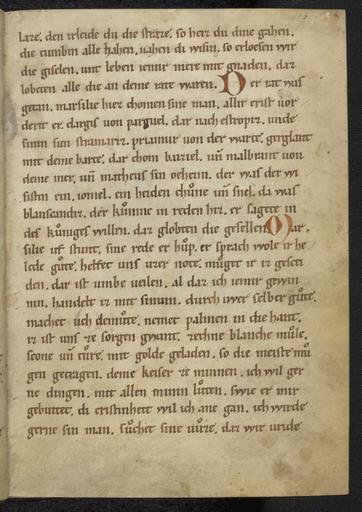 lare. den irleide du die sture. so herr du dine gahen.
die cumbin alle hahen. nahen di wisin. so erloesen wir
die giselen. unt leben iemir mere mit gnaden. daz
lobeten alle die an deme rate waren. Der rat was
getan. marsilie hiez chomen sine man. allir erist vor
derit er. dargis von parguel. dar nach estropiz. unde
sinin sun stramariz. priamur von der warte. gerglant
mit deme barte. dar chom bazziel. uñ malbrant von
deme mer. uñ matheus sin oeheim. der was der wi
sistin ein. ioniel. ein heiden chůne uñ snel. da was
blansandiz. der kůnine in reden hiz. er sagete in
des kůnigel willen. daz globten die gesellen. Mar,
silie uf stunt. sine rede er hůp. er sprach wole ir he
lede gůte. helfet uns urer note. můget ir iz gescei
den. daz ist umbe ualen. al daz ich iemir gewin
nin. handelt iz mit sinnin. durch iwer selber gůte.
machet uch demůte. nemet palmen in die hant.
iz ist uns ze sorgen gwant. zechne blanche můle.
scone uñ tůre. mit golde geladen. so die meiste mů
gen getragen. deme keiser ze minnen. ich wil ger
ne dingen. mit allen minin lůten. swie er mir
gebiutet. di cristinheit wil ich ane gan. ich wirde
gerne sin man. sůchet sine vůze. daz wir unde